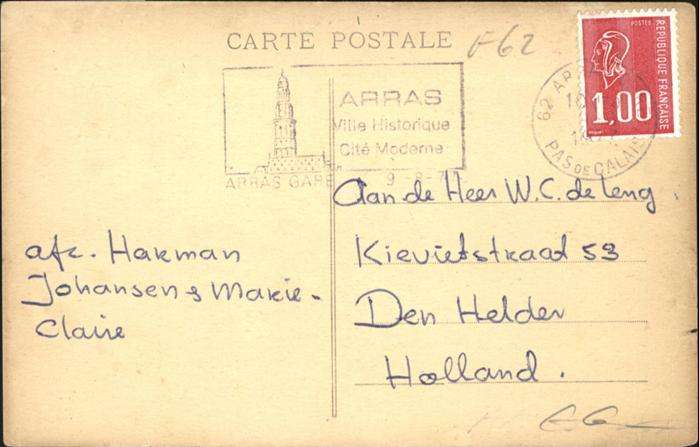 CARTE POSTALE
F62
ARRAS
Ville Historique
Cité Moderne
ARRAS GARE
9-8-7
62 AR
PAS DE CALAIS
POSTES
REPUBLIQUE FRANÇAISE
1,00
Aan de Heer W.C. de Leng.
Kievietstraat 53
Den Helder
Holland.
afz. Harman
Johansen & Marie-
Claire